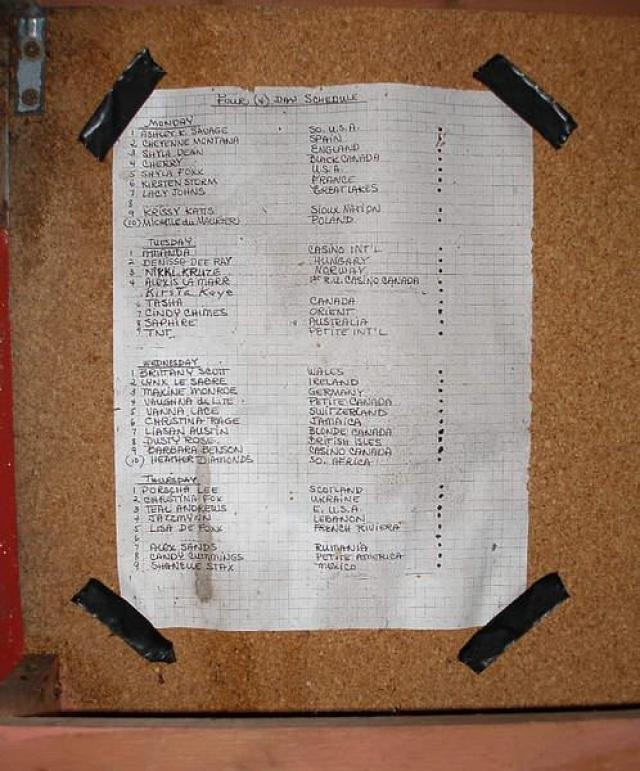 FOUR (4) DAY SCHEDULE
MONDAY
1 ASHLEY K. SAVAGE SO. U.S.A.
2 CHEYENNE MONTANA SPAIN
3 SHYLA DEAN ENGLAND
4 CHERRY BLACK CANADA
5 SHYLA FOXX U.S.A.
6 KIRSTEN STORM FRANCE
7 LACY JOHNS GREAT LAKES
8
9 KRISSY KATTS SIOUX NATION
(10) MICHELLE du MAURIER POLAND
TUESDAY
1 AMANDA CASINO INT'L
2 DENISSA DEE RAY HUNGARY
3 NIKKI KRUZE NORWAY
4 ALEXIS LA MARR CASINO CANADA
Kirsta Kaye
6 TASHA CANADA
7 CINDY CHIMES ORIENT
8 SAPHIRE AUSTRALIA
9 TNT PETITE INT'L
WEDNESDAY
1 BRITTANY SCOTT WALES
2 LYNX LE SABRE IRELAND
3 MAXINE MONROE GERMANY
4 VAUGHNA de LITE PETITE CANADA
5 VANNA LACE SWITZERLAND
6 CHRISTINA RAGE JAMAICA
7 LIASAN AUSTIN BLONDE CANADA
8 DUSTY ROSE BRITISH ISLES
9 BARBARA BENSON CASINO CANADA
(10) HEATHER DIAMONDS SO. AFRICA
THURSDAY
1 PORSCHA LEE SCOTLAND
2 CHRISTINA FOX UKRAINE
3 TEAL ANDREWS E. U.S.A.
4 JAZZMYNN LEBANON
5 LISA DE FONX FRENCH RIVIERA
6
7 ALEX SANDS RUMANIA
8 CANDY CUMMINGS PETITE AMERICA
9 SHANELLE STAX MEXICO